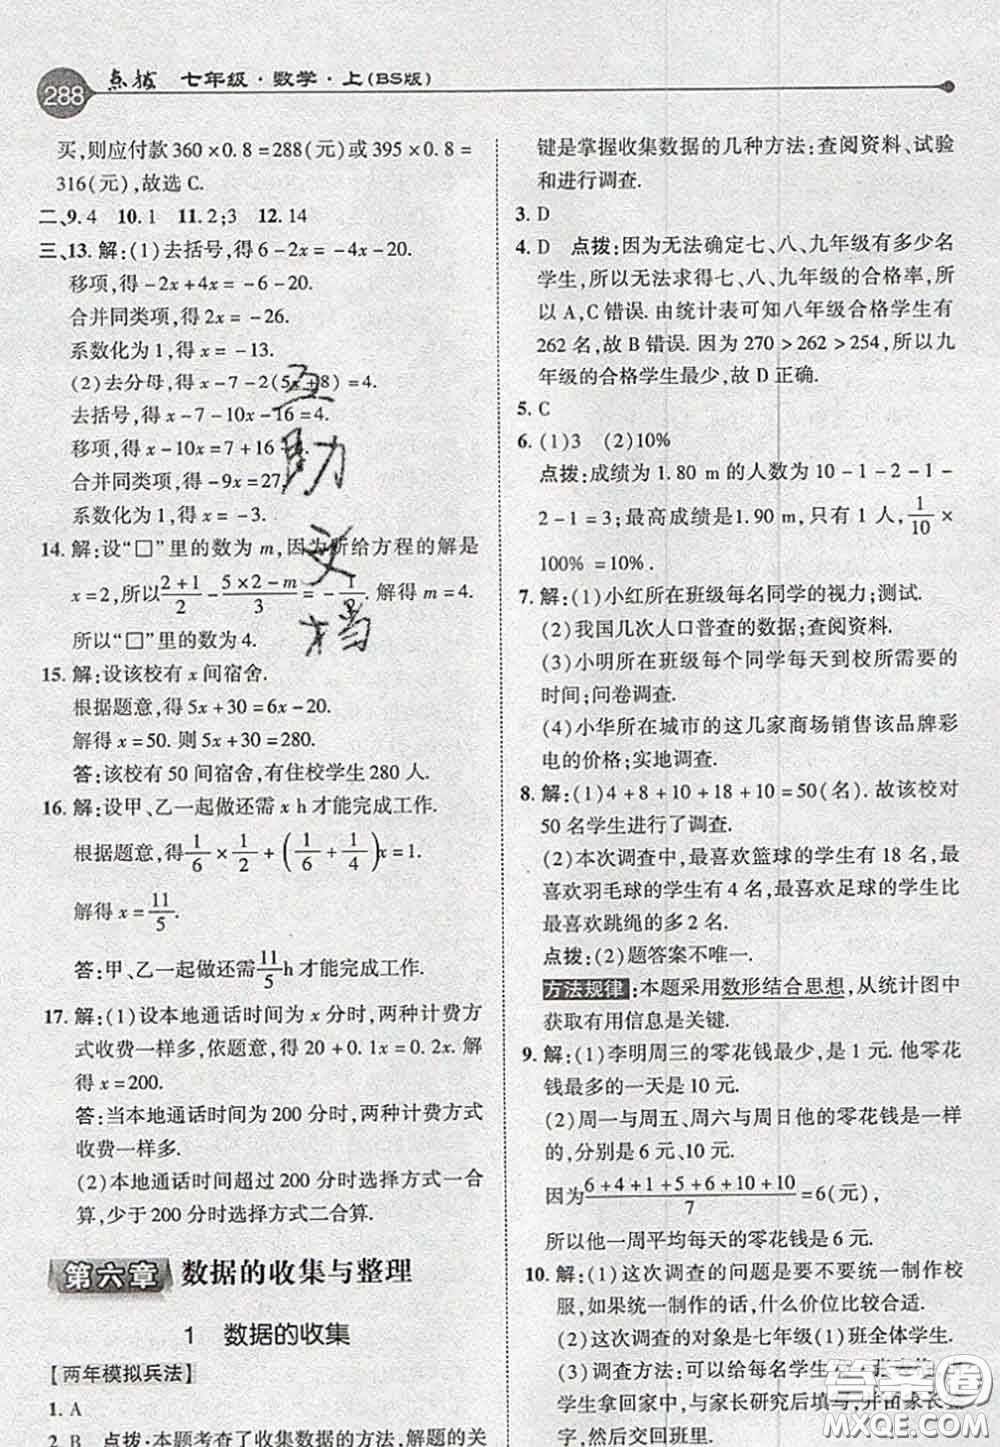 288 点拨 七年级·数学·上(BS版)
买,则应付款 360×0.8=288(元)或 395×0.8=
316(元),故选 C.
二、9.4 10.1 11.2;3 12.14
三、13.解:(1)去括号,得 6-2x=-4x-20.
移项,得-2x+4x=-6-20.
合并同类项,得 2x=-26.
系数化为 1,得 x=-13.
(2)去分母,得 x-7-2(5x+8)=4.
去括号,得 x-7-10x-16=4.
移项,得 x-10x=7+16+4.
合并同类项,得-9x=27.
系数化为 1,得 x=-3.
14.解:设“□”里的数为 m,因为所给方程的解是
x=2,所以(2+1)/2-(5×2-m)/3=-1/2.解得 m=4.
所以“□”里的数为 4.
15.解:设该校有 x 间宿舍.
根据题意,得 5x+30=6x-20.
解得 x=50.则 5x+30=280.
答:该校有 50 间宿舍,有住校学生 280 人.
16.解:设甲、乙一起做还需 x h 才能完成工作.
根据题意,得1/6×1/2+(1/6+1/4)x=1.
解得 x=11/5.
答:甲、乙一起做还需11/5 h 才能完成工作.
17.解:(1)设本地通话时间为 x 分时,两种计费方
式收费一样多,依题意,得 20+0.1x=0.2x.解
得 x=200.
答:当本地通话时间为 200 分时,两种计费方式
收费一样多.
(2)本地通话时间超过 200 分时选择方式一合
算,少于 200 分时选择方式二合算.
第六章 数据的收集与整理
1 数据的收集
【两年模拟兵法】
1.A
2.B 点拨:本题考查了收集数据的方法,解题的关
键是掌握收集数据的几种方法:查阅资料、试验
和进行调查.
3.D
4.D 点拨:因为无法确定七、八、九年级有多少名
学生,所以无法求得七、八、九年级的合格率,所
以 A,C 错误.由统计表可知八年级合格学生有
262 名,故 B 错误.因为 270>262>254,所以九
年级的合格学生最少,故 D 正确.
5.C
6.(1)3 (2)10%
点拨:成绩为 1.80 m 的人数为 10-1-2-1-
2-1=3;最高成绩是1.90 m,只有 1 人,1/10×
100%=10%.
7.解:(1)小红所在班级每名同学的视力;测试.
(2)我国几次人口普查的数据;查阅资料.
(3)小明所在班级每个同学每天到校所需要的
时间;问卷调查.
(4)小华所在城市的这几家商场销售该品牌彩
电的价格;实地调查.
8.解:(1)4+8+10+18+10=50(名).故该校对
50 名学生进行了调查.
(2)本次调查中,最喜欢篮球的学生有 18 名,最
喜欢羽毛球的学生有 4 名,最喜欢足球的学生比
最喜欢跳绳的多 2 名.
点拨:(2)题答案不唯一.
方法规律:本题采用数形结合思想,从统计图中
获取有用信息是关键.
9.解:(1)李明周三的零花钱最少,是 1 元.他零花
钱最多的一天是 10 元.
(2)周一与周五、周六与周日他的零花钱是一样
的,分别是 6 元、10 元.
(3)因为(6+4+1+5+6+10+10)/7=6(元),
所以他一周平均每天的零花钱是 6 元.
10.解:(1)这次调查的问题是要不要统一制作校
服,如果统一制作的话,什么价位比较合适.
(2)这次调查的对象是七年级(1)班全体学生.
(3)调查方法:可以给每名学生
学生拿回家中,与家长研究后填写,并由家长签
字,然后交回班里.
互助文档
答案圈
MXQE.COM